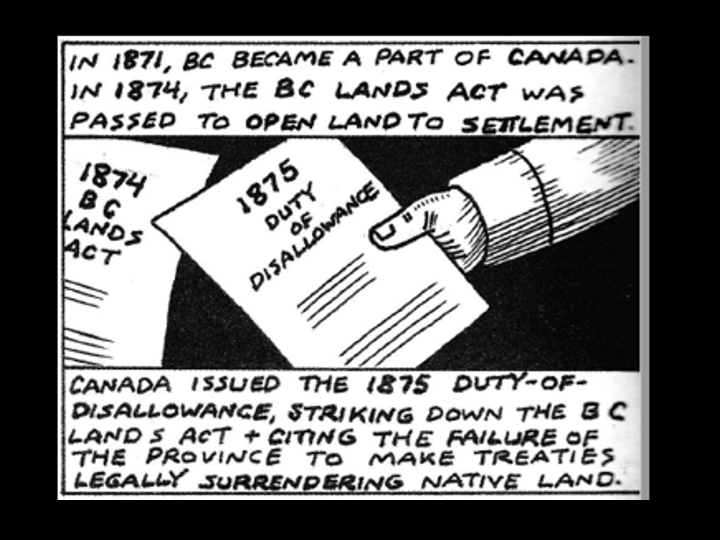 IN 1871, BC BECAME A PART OF CANADA.
IN 1874, THE BC LANDS ACT WAS
PASSED TO OPEN LAND TO SETTLEMENT.
1874
BC
LANDS
ACT
1875
DUTY
OF
DISALLOWANCE
CANADA ISSUED THE 1875 DUTY-OF-
DISALLOWANCE, STRIKING DOWN THE BC
LANDS ACT + CITING THE FAILURE OF
THE PROVINCE TO MAKE TREATIES
LEGALLY SURRENDERING NATIVE LAND.